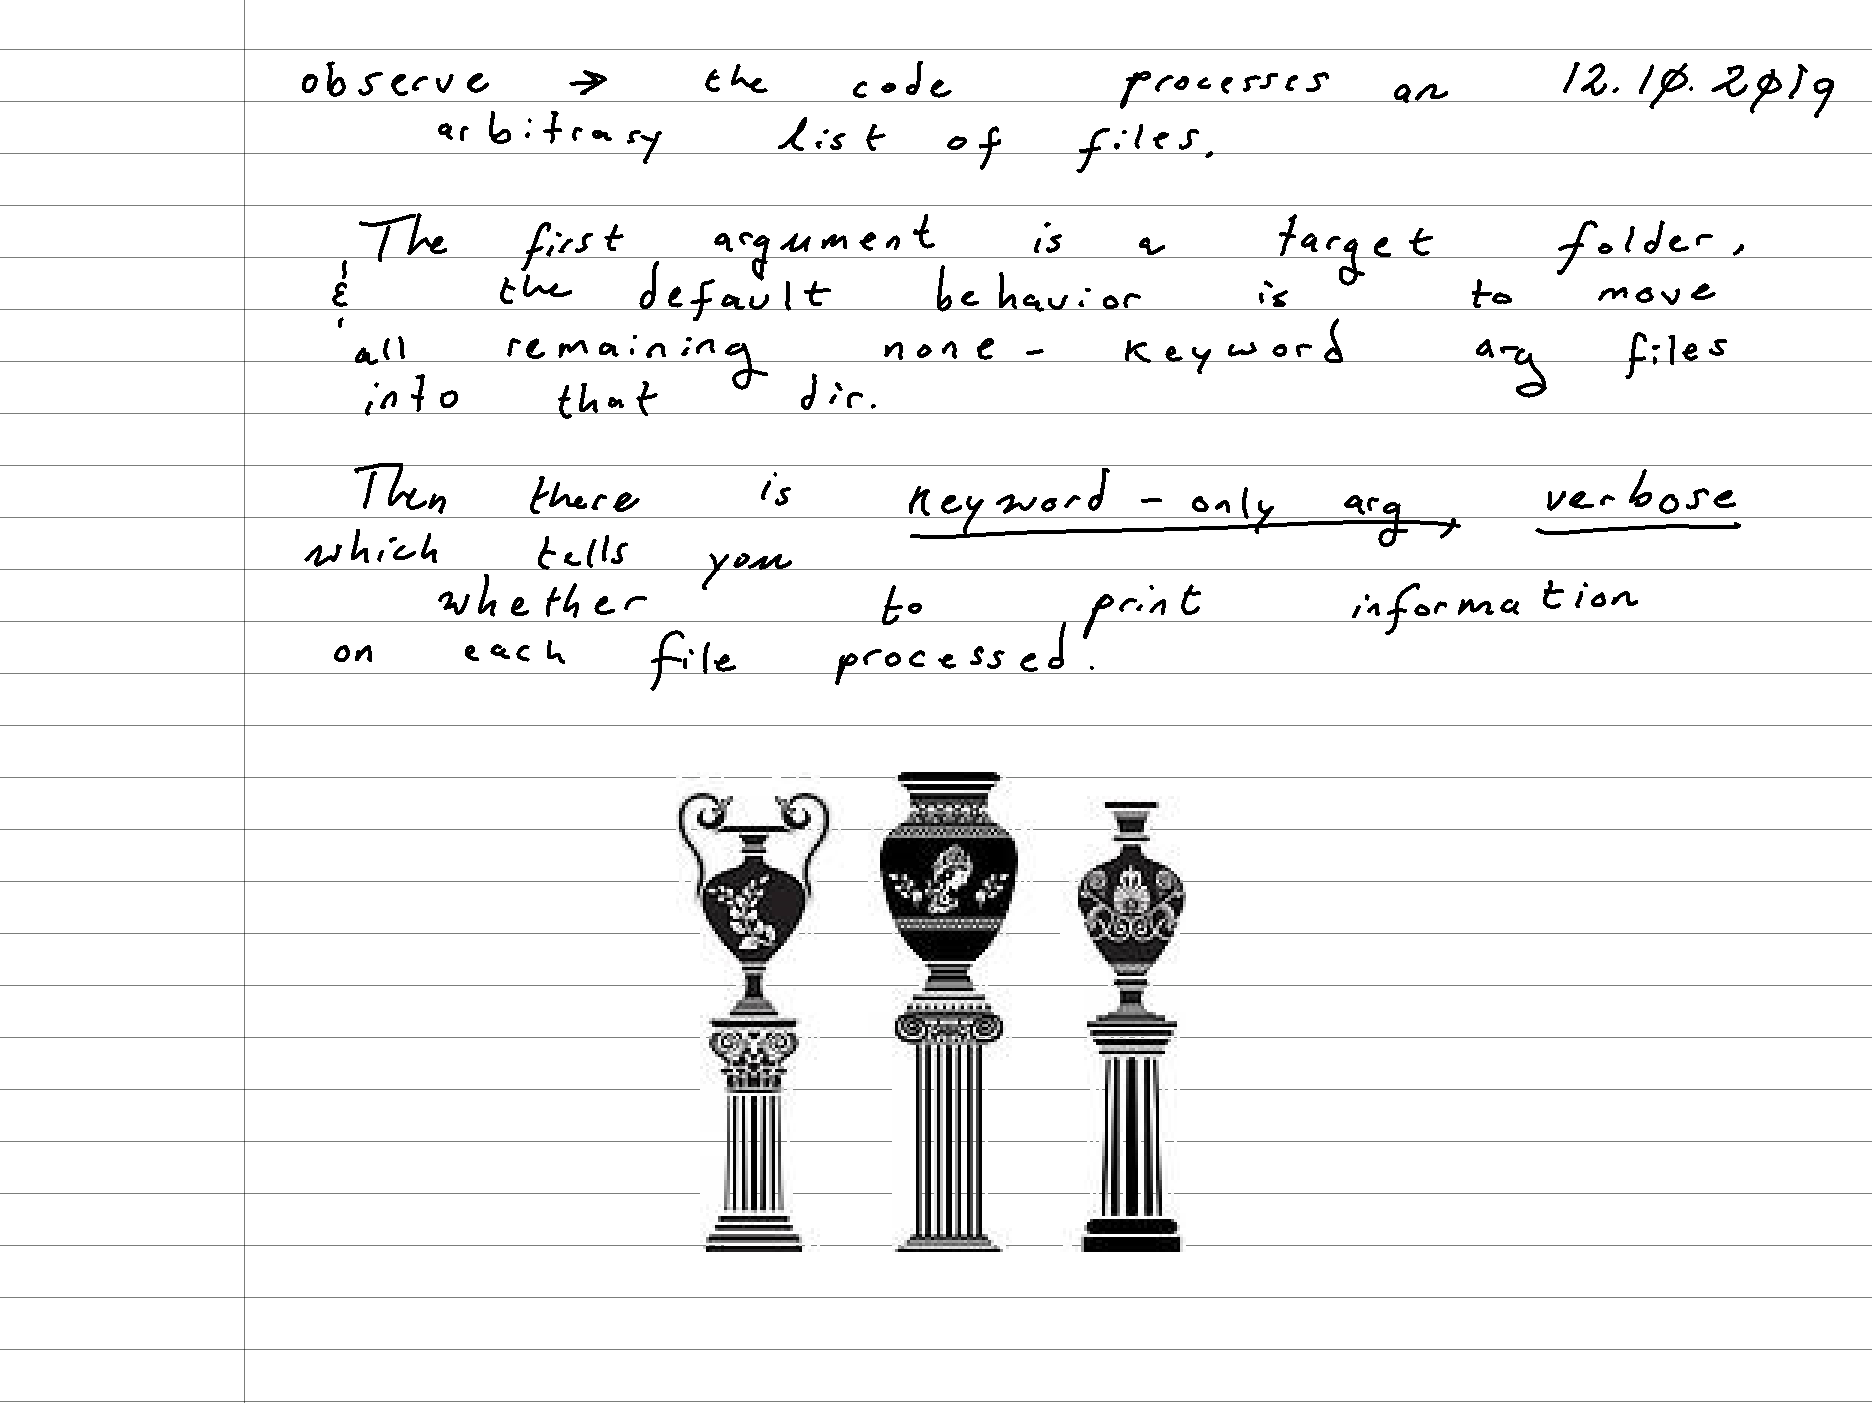 observe → the code processes an 12.10.2019
arbitrary list of files.
The first argument is a target folder,
& the default behavior is to move
all remaining none - keyword arg files
into that dir.
Then there is keyword - only arg, verbose
which tells you
whether to print information
on each file processed.